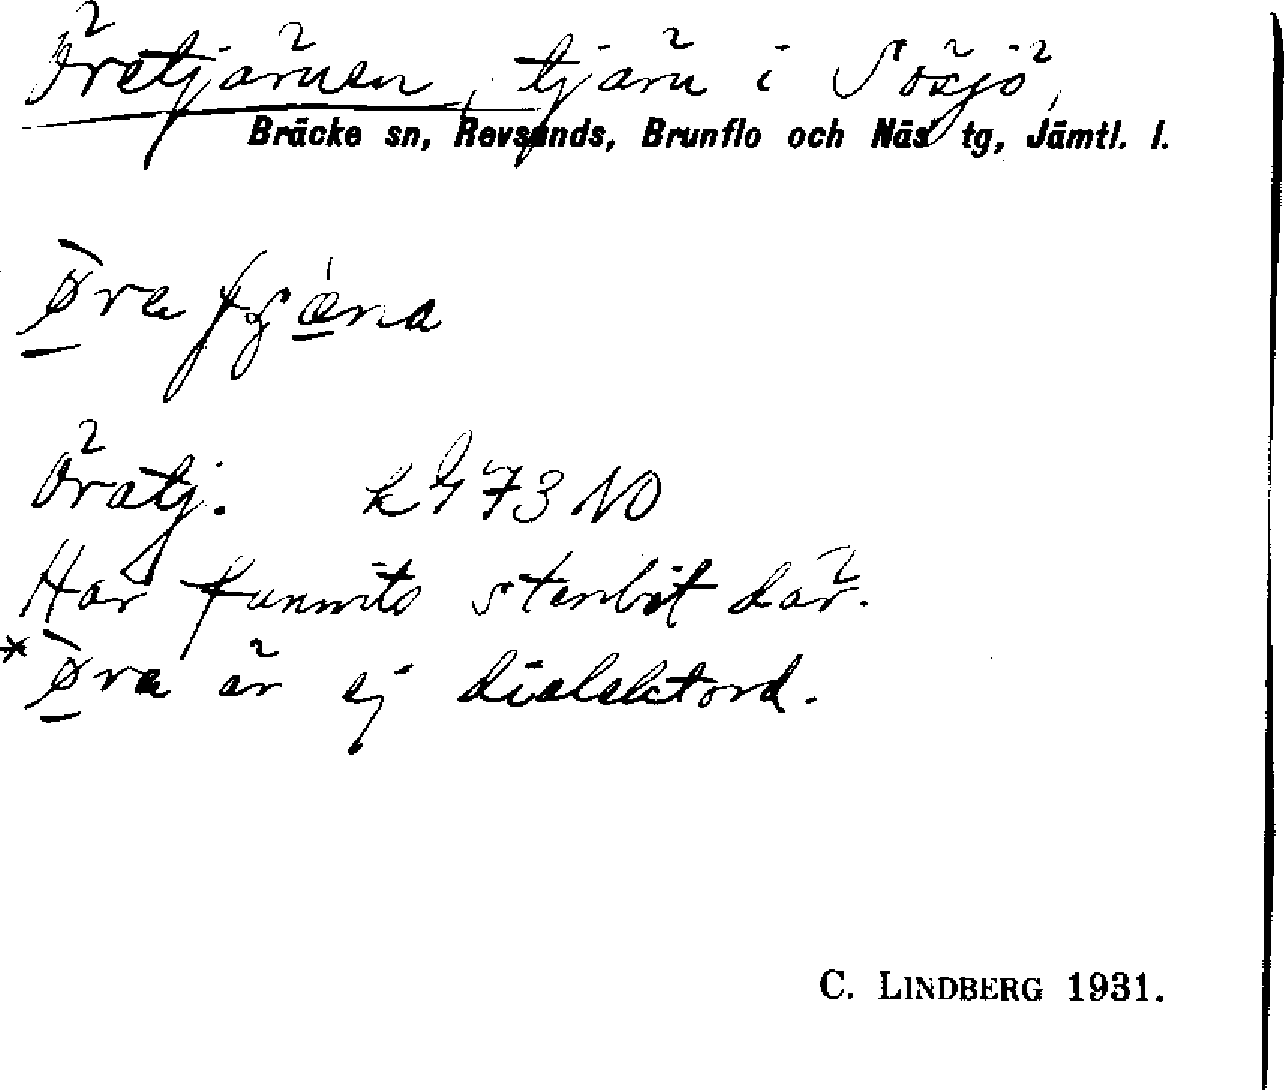 Öretjärnen, tjärn i Sösjö,
Bräcke sn, Revsunds, Brunflo och Näs tg, Jämtl. l.
Öratj. 73 NO
Har funnits stenbit där.
är ej dialektord.
C. LINDBERG 1931.